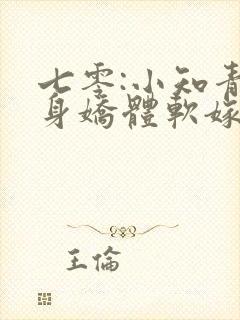 七零:小知青
身嬌體軟嫁
王倫